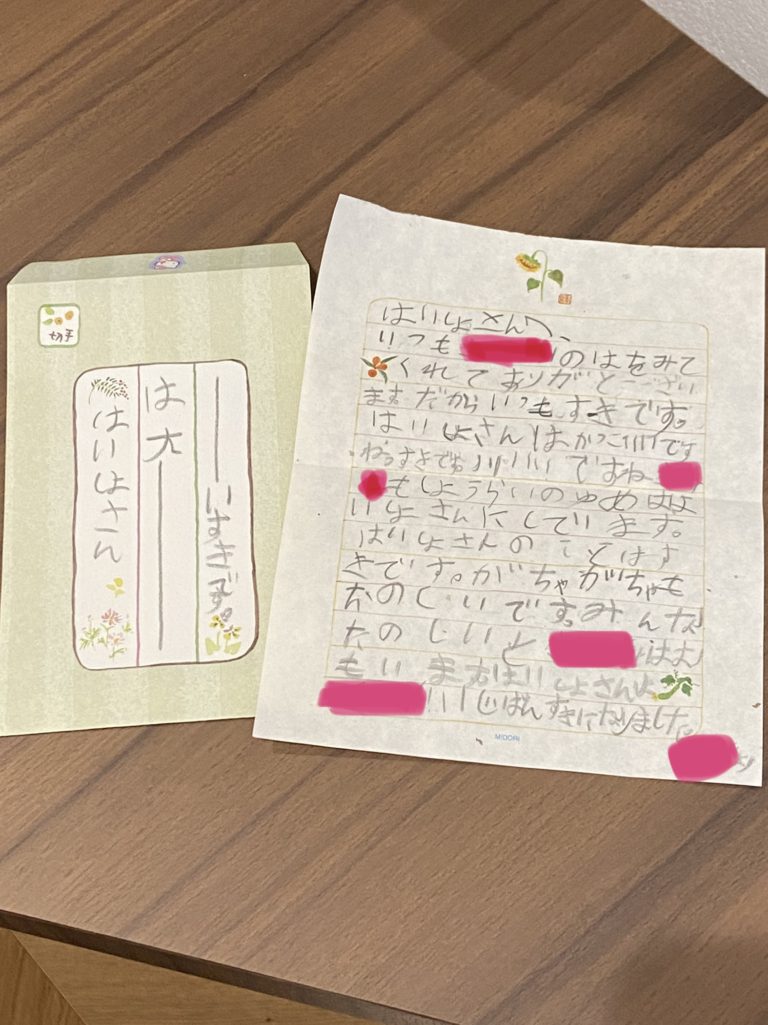 切手
はいしゃさん
は大ーーー
ーーーいすきです。
はいしゃさんへ
いつも のはをみて
くれてありがとーござい
ます。だからいつもすきです。
はいしゃさんはかっこいいです
ね。すきです。 いいですね
もしょうらいのゆめはは
いしゃさんにしています。
はいしゃさんのことはす
きです。がちゃがちゃも
たのしいです。みんな
たのしいと は
もいます。はいしゃさん
いじばんすきになりました。
より
MIDORI